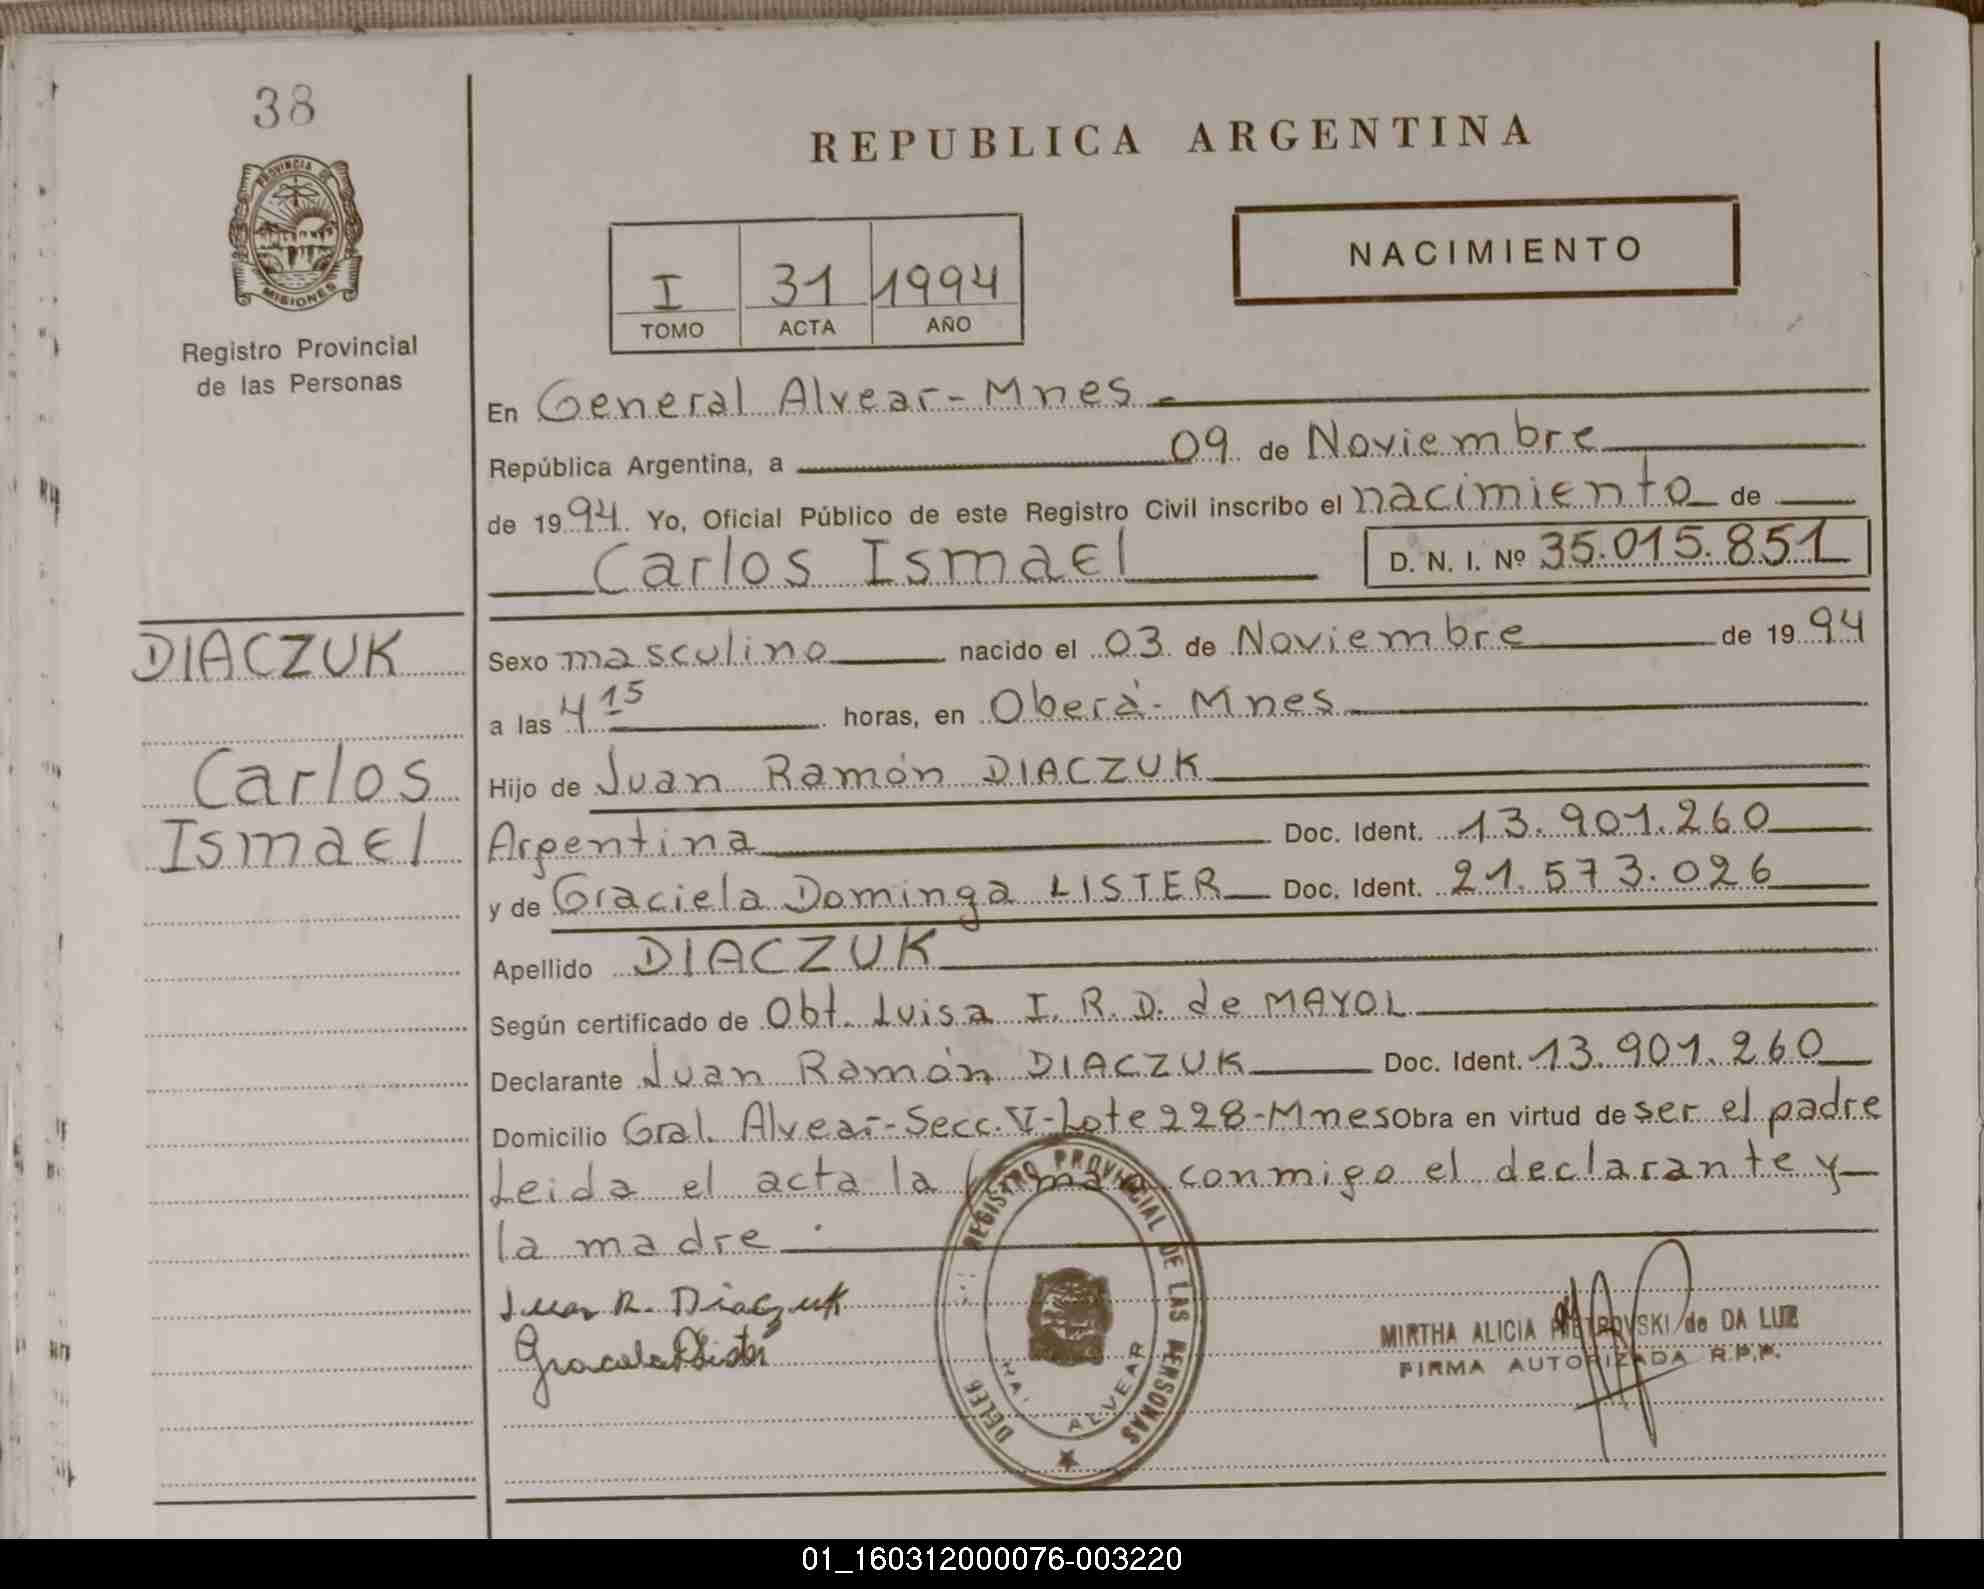 38
PROVINCIA DE
MISIONES
Registro Provincial
de las Personas
DIACZUK
Carlos
Ismael
REPUBLICA ARGENTINA
I 31 1994
TOMO ACTA AÑO
NACIMIENTO
En General Alvear - Mnes.
República Argentina, a 09 de Noviembre
de 1994. Yo, Oficial Público de este Registro Civil inscribo el nacimiento de
Carlos Ismael D. N. I. Nº 35.015.851
Sexo masculino nacido el 03 de Noviembre de 1994
a las 4 15 horas, en Oberá - Mnes
Hijo de Juan Ramón DIACZUK
Argentina Doc. Ident. 13.901.260
y de Graciela Dominga LISTER Doc. Ident. 21.573.026
Apellido DIACZUK
Según certificado de Obt. Luisa I. R. D. de MAYOL
Declarante Juan Ramón DIACZUK Doc. Ident. 13.901.260
Domicilio Gral. Alvear - Secc. V - Lote 228 - Mnes Obra en virtud de ser el padre
Leida el acta la firman conmigo el declarante y
la madre
Juan R. Diaczuk
REGISTRO PROVINCIAL DE LAS PERSONAS
ALVEAR
MIRTHA ALICIA PIETROVSKI de DA LUZ
FIRMA AUTORIZADA R.P.P.
01_160312000076-003220